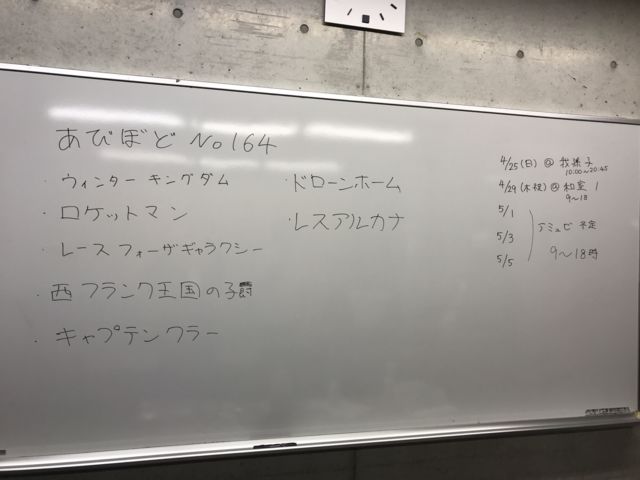 あびぼど No164
・ウィンターキングダム
・ロケットマン
・レースフォーザギャラクシー
・西フランク王国の子爵
・キャプテンフラー
・ドローンホーム
・レスアルカナ
4/25(日) @ 我孫子
10:00〜20:45
4/29(木祝) @ 和室 1
9〜18
5/1
5/3
5/5
アミュゼ 予定
9〜18時